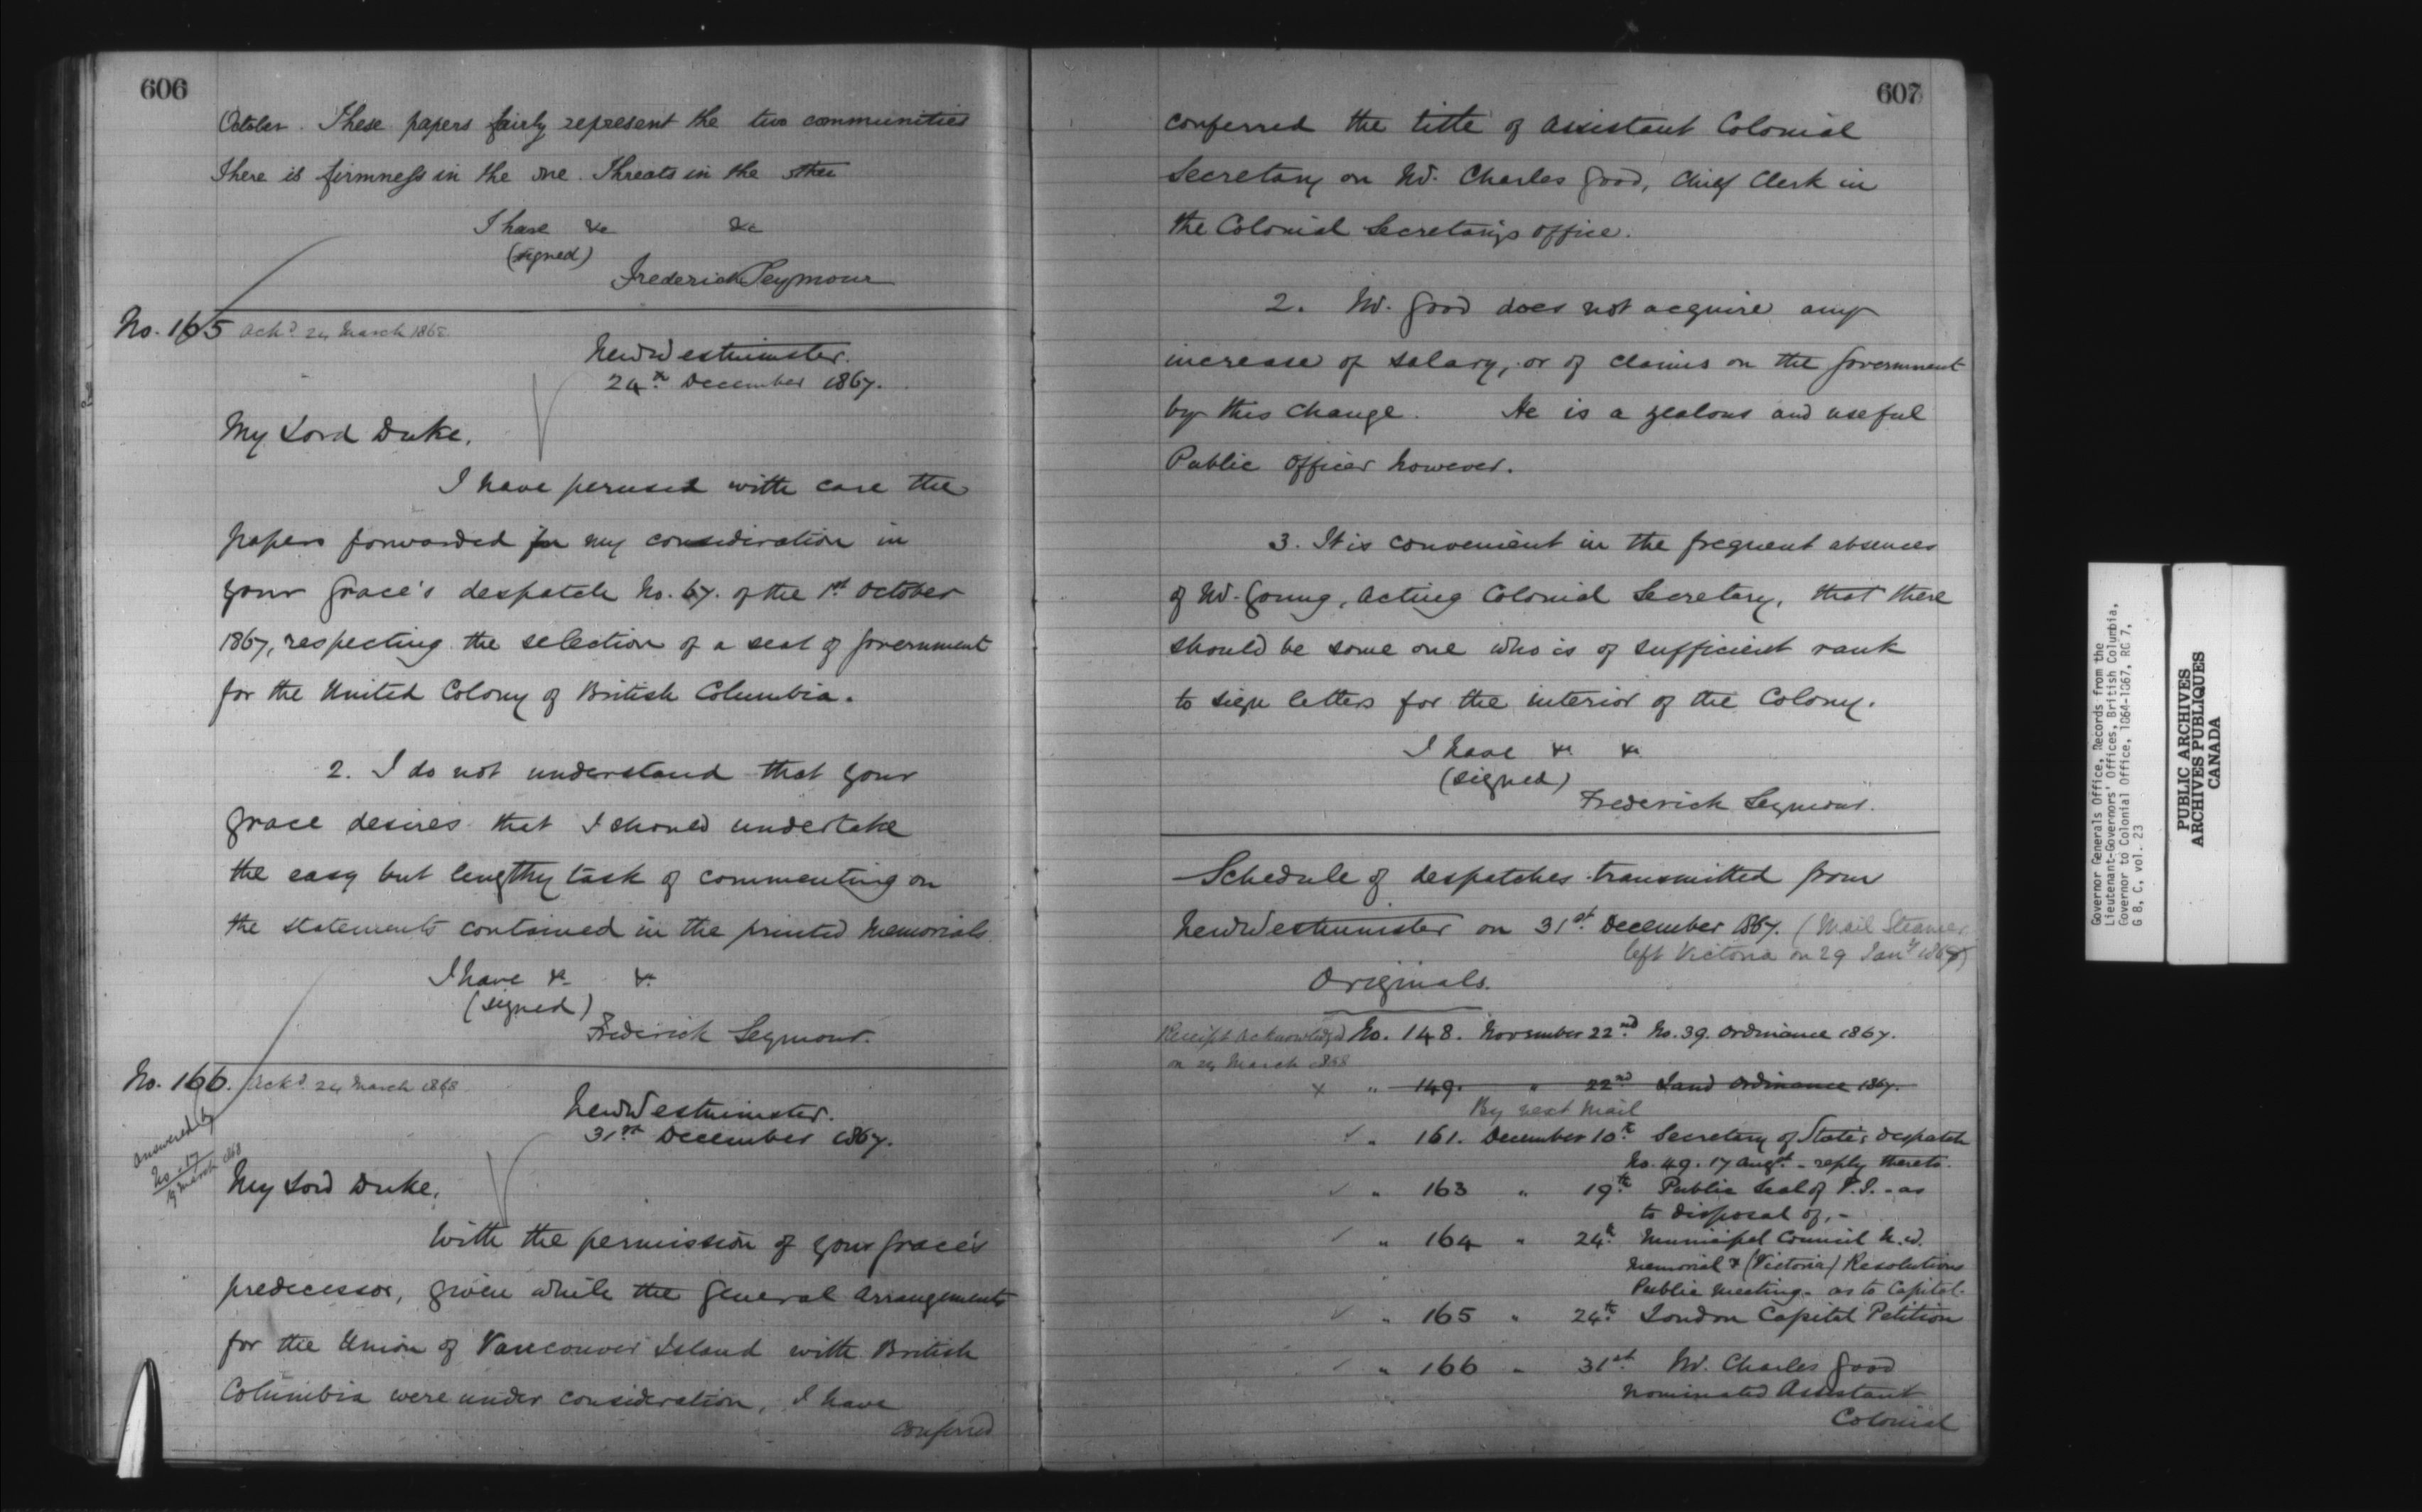 606
October. These papers fairly represent the two communities
There is firmness in the one. Threats in the other
I have &c &c
(signed)
Frederick Seymour
No. 165 Ackd. 24 March 1868.
New Westminster.
24th December 1867.
My Lord Duke,
I have perused with care the
papers forwarded for my consideration in
your Grace's despatch No. 67. of the 1st October
1867, respecting the selection of a seat of Government
for the United Colony of British Columbia.
2. I do not understand that your
Grace desires that I should undertake
the easy but lengthy task of commenting on
the statements contained in the printed Memorials.
I have &c &c
(signed)
Frederick Seymour.
No. 166. Ackd. 24 March 1868
Answered by
No. 17
March 1868
New Westminster.
31st December 1867.
My Lord Duke,
With the permission of your Grace's
predecessor, given while the General Arrangements
for the Union of Vancouver Island with British
Columbia were under consideration, I have
conferred
607
conferred the title of Assistant Colonial
Secretary on Mr. Charles Good, Chief Clerk in
the Colonial Secretary's office.
2. Mr. Good does not acquire any
increase of salary, or of claims on the Government
by this change. He is a zealous and useful
Public Officer however.
3. It is convenient in the frequent absences
of Mr. Young, Acting Colonial Secretary, that there
should be some one who is of sufficient rank
to sign letters for the interior of the Colony.
I have &c &c
(signed)
Frederick Seymour.
Schedule of despatches transmitted from
New Westminster on 31st December 1867. (Mail Steamer
left Victoria on 29 Jany
Originals.
Receipt Acknowledged No. 148. November 22nd No. 39. Ordinance 1867.
on 24 March 1868
x " 149. " 22nd Land Ordinance 1867.
By next Mail
✓ " 161. December 10th Secretary of State's despatch
No. 49. 17 Augst - reply thereto.
✓ " 163 " 19th Public Seal of V.I. - as
to disposal of. -
✓ " 164 " 24th Municipal Council N.W.
Memorial & (Victoria) Resolutions
Public Meeting - as to Capital.
✓ " 165 " 24th London Capital Petition
✓ " 166 " 31st Mr. Charles Good
nominated Assistant
Colonial
Governor Generals Office, Records from the
Lieutenant-Governors' Offices, British Columbia,
Governor to Colonial Office, 1864-1867, RG 7,
G 8, C, vol. 23
PUBLIC ARCHIVES
ARCHIVES PUBLIQUES
CANADA